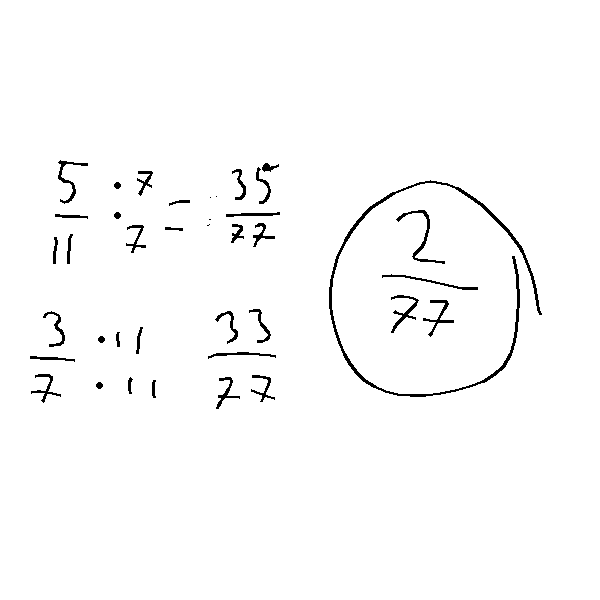 5/11 · 7/7 = 35/77
3/7 · 11/11 33/77
2/77